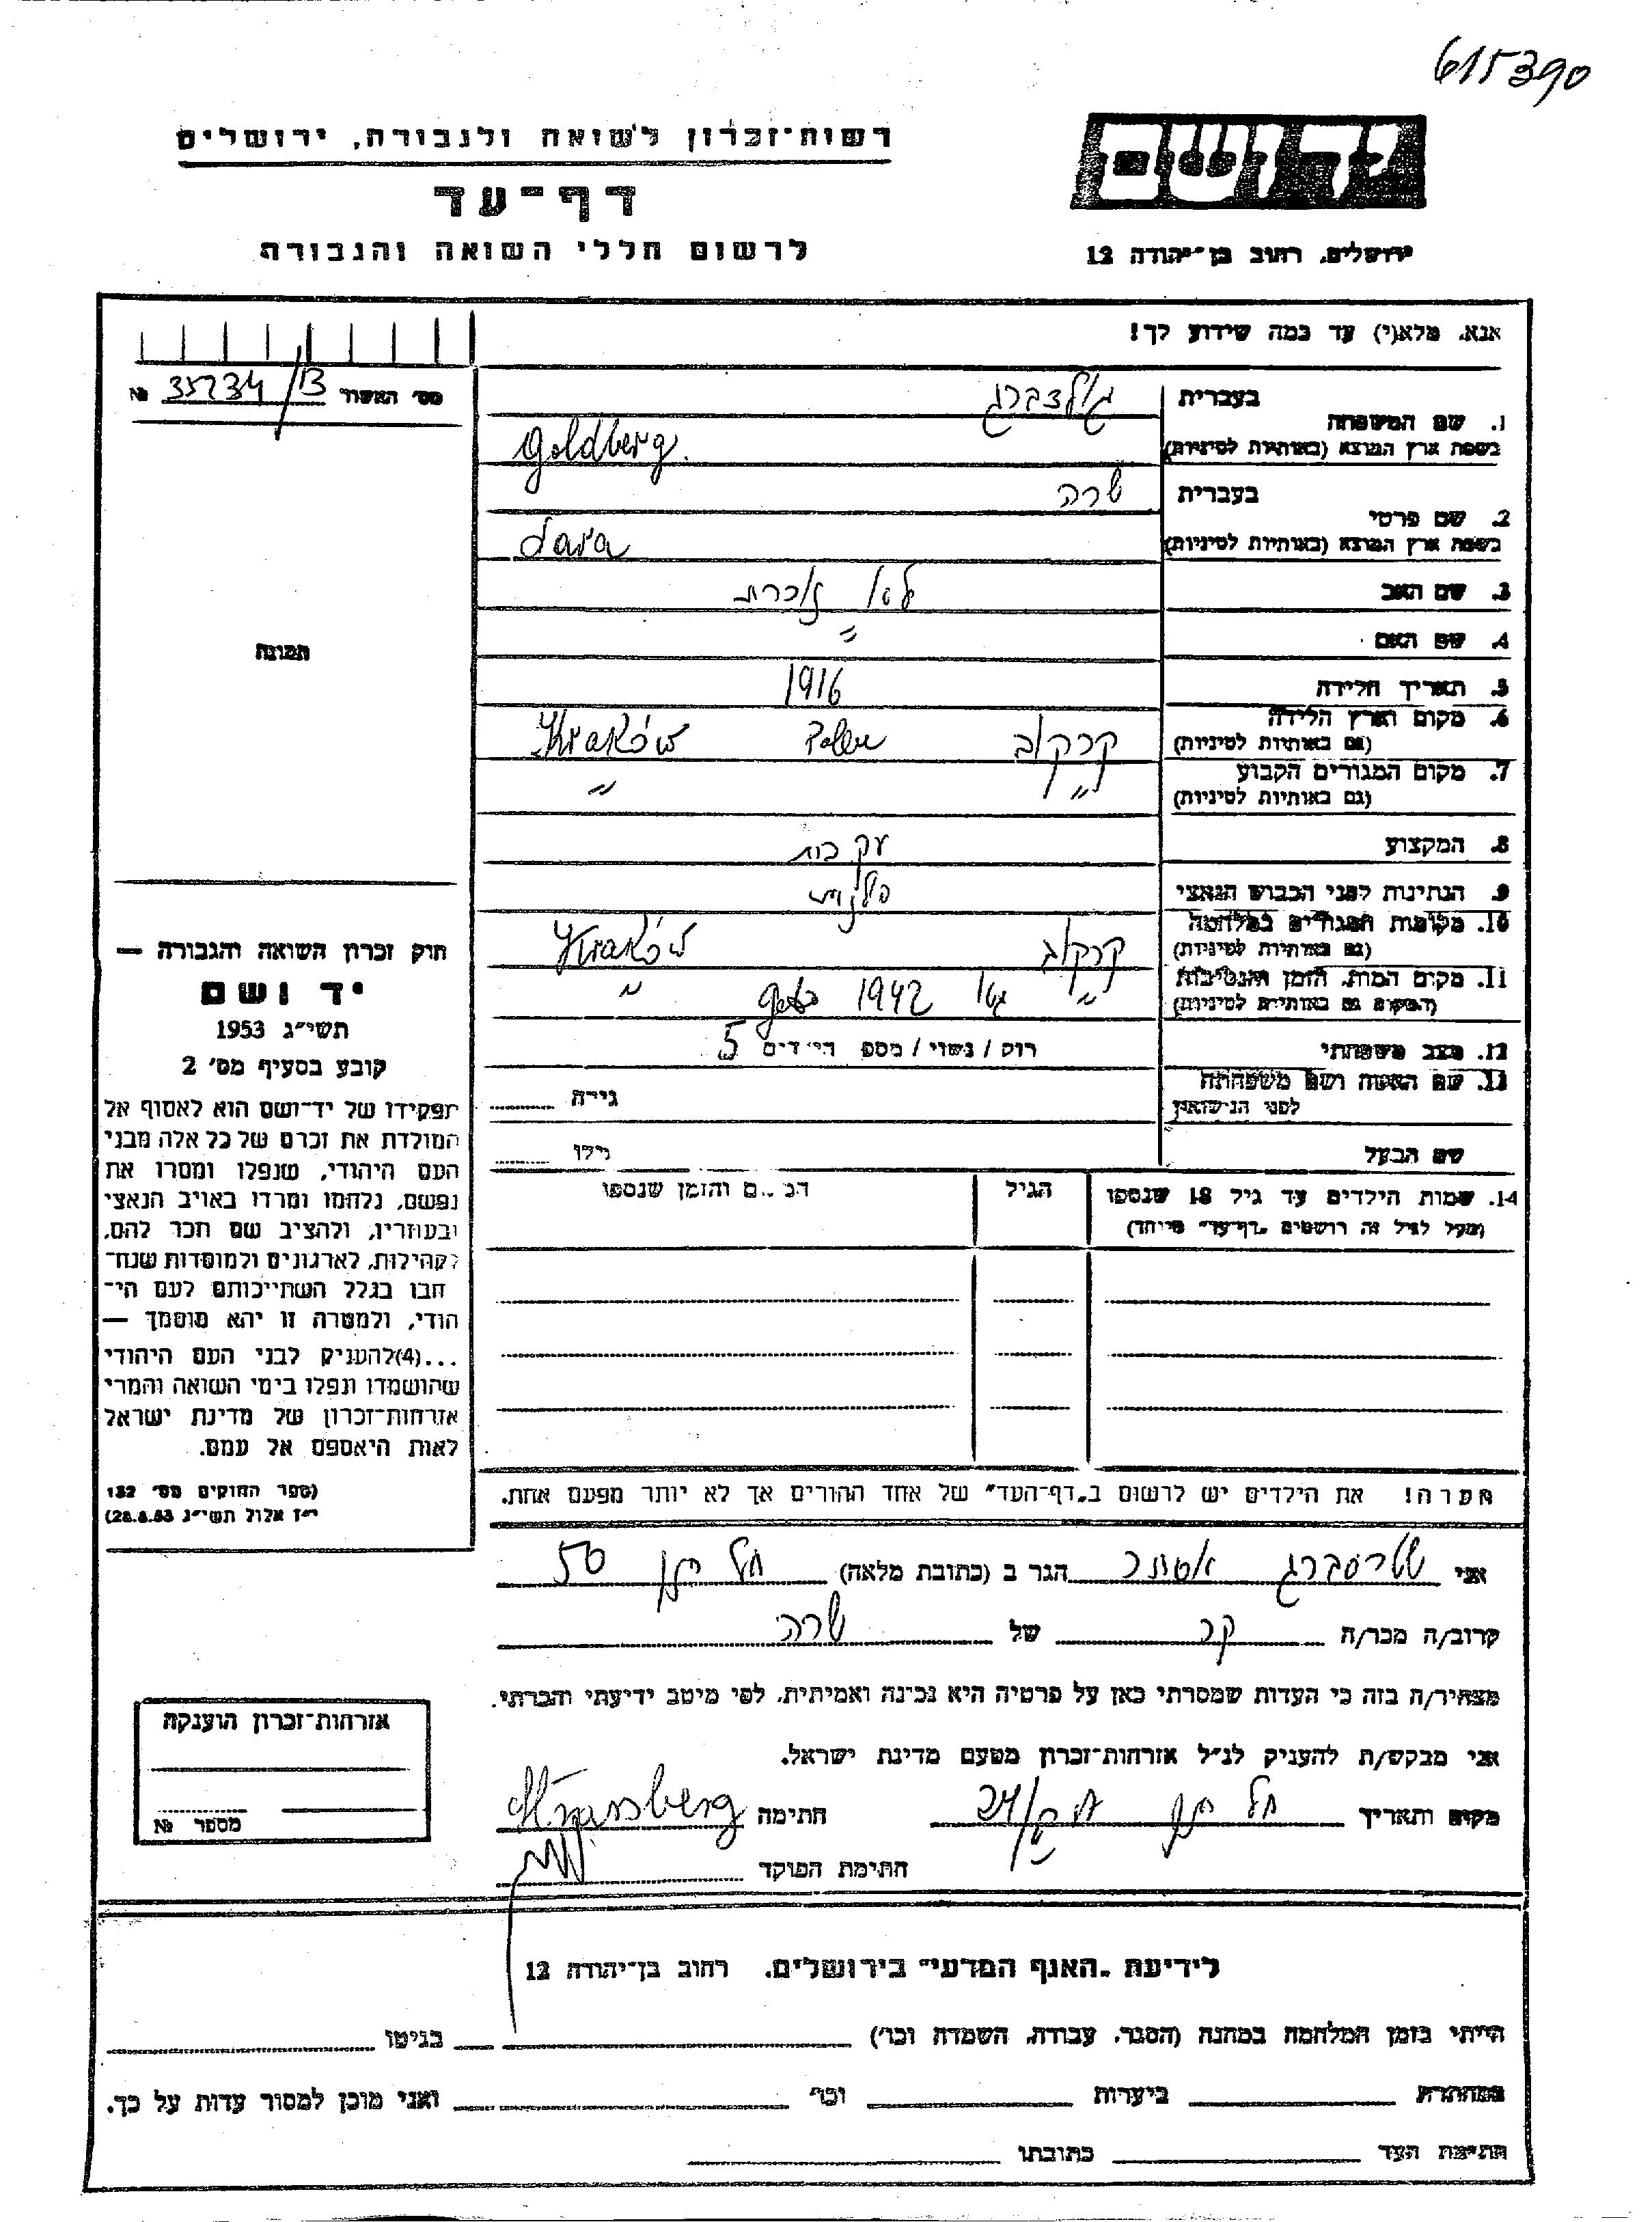 615390
יד ושם
רשות־זכרון לשואה ולגבורה, ירושלים
דף־עד
לרשום חללי השואה והגבורה
ירושלים, רחוב בן־יהודה 12
אנא, מלא(י) עד כמה שידוע לך!
מס׳ האשור 35234/B №
1. שם המשפחה
בעברית גולדברג
בשפת ארץ המוצא (באותיות לטיניות) Goldberg.
2. שם פרטי
בעברית שרה
בשפת ארץ המוצא (באותיות לטיניות) Sara
3. שם האב לא זוכרת
4. שם האם "
5. תאריך הלידה 1916
6. מקום וארץ הלידה
(גם באותיות לטיניות) קרקוב Polen Kraków
7. מקום המגורים הקבוע
(גם באותיות לטיניות) " "
8. המקצוע עק בית
9. הנתינות לפני הכבוש הנאצי פולנית
10. מקומות המגורים במלחמה
(גם באותיות לטיניות) קרקוב Kraków
11. מקום המות, הזמן והנסיבות
(המקום גם באותיות לטיניות) " גטו 1942 geto "
12. מצב משפחתי רוק / נשוי / מספ הי׳דים 5
13. שם האשה ושם משפחתה
לפני הנישואין
גירה
שם הבעל
גילו
14. שמות הילדים עד גיל 18 שנספו
(מעל לגיל זה רושמים „דף־עד״ מייוחד)
הגיל
המקום והזמן שנספו
תמונה
חוק זכרון השואה והגבורה —
יד ושם
תשי״ג 1953
קובע בסעיף מס׳ 2
תפקידו של יד־ושם הוא לאסוף אל
המולדת את זכרם של כל אלה מבני
העם היהודי, שנפלו ומסרו את
נפשם, נלחמו ומרדו באויב הנאצי
ובעוזריו, ולהציב שם וזכר להם,
לקהילות, לארגונים ולמוסדות שנח־
רבו בגלל השתייכותם לעם הי־
הודי, ולמטרה זו יהא מוסמך —
...(4)להעניק לבני העם היהודי
שהושמדו ונפלו בימי השואה והמרי
אזרחות־זכרון של מדינת ישראל
לאות היאספם אל עמם.
(ספר החוקים מס׳ 132
י״ז אלול תשי״ג 28.8.53)
הערה! את הילדים יש לרשום ב„דף־העד״ של אחד ההורים אך לא יותר מפעם אחת.
אני שטרסברג אסתר הגר ב (כתובת מלאה) תל חנן 50
קרוב/ה מכר/ה קר של שרה
מצהיר/ה בזה כי העדות שמסרתי כאן על פרטיה היא נכונה ואמיתית, לפי מיטב ידיעתי והכרתי.
אני מבקש/ת להעניק לנ״ל אזרחות־זכרון מטעם מדינת ישראל.
מקום ותאריך תל חנן חתימה Strassberg
חתימת הפוקד
אזרחות־זכרון הוענקה
מספר №
לידיעת „האגף המדעי״ בירושלים, רחוב בן־יהודה 12
הייתי בזמן המלחמה במחנה (הסגר, עבודה, השמדה וכו׳) בגיטו
במחתרת ביערות וכו׳ ואני מוכן למסור עדות על כך.
חתימת העד כתובתו